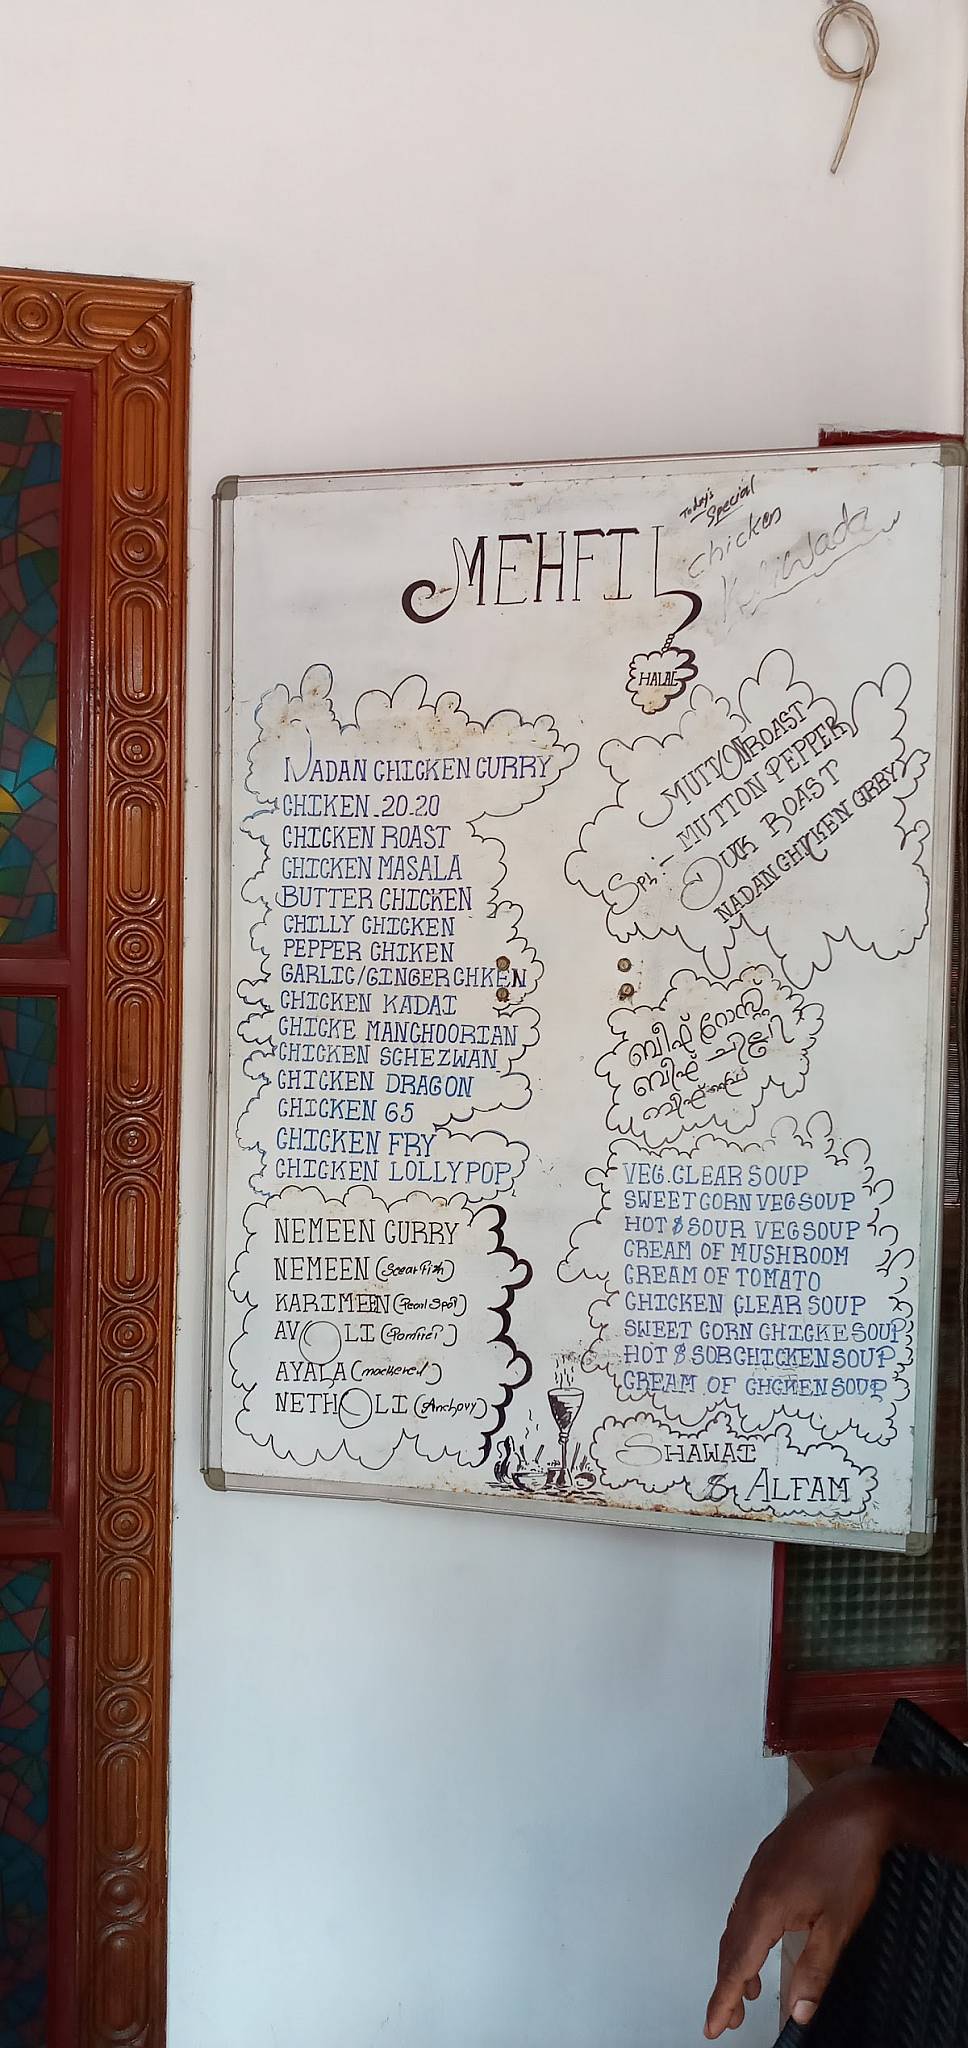 MEHFIL
Today's
Special
chicken
HALAL
NADAN CHICKEN CURRY
CHIKEN.20.20
CHICKEN ROAST
CHICKEN MASALA
BUTTER CHICKEN
CHILLY CHICKEN
PEPPER CHIKEN
GARLIC/GINGER CHKEN
CHICKEN KADAI
CHICKE MANCHOORIAN
CHICKEN SCHEZWAN
CHICKEN DRAGON
CHICKEN 65
CHICKEN FRY
CHICKEN LOLLYPOP
NEMEEN CURRY
NEMEEN (Scear Fish)
KARIMEEN (Pearl Spot)
AVOLI (Pomfret)
AYALA (mackerel)
NETHOLI (Anchovy)
MUTTON ROAST
Spl:- MUTTON PEPPER
DUCK ROAST
ബീഫ് റോസ്റ്റ്
ബീഫ് ചില്ലി
VEG.CLEAR SOUP
SWEET CORN VEG SOUP
HOT & SOUR VEG SOUP
CREAM OF MUSHROOM
CREAM OF TOMATO
CHICKEN CLEAR SOUP
SWEET CORN CHICKE SOUP
HOT & SOR CHICKEN SOUP
CREAM OF CHCKEN SOUP
SHAWAI
& ALFAM